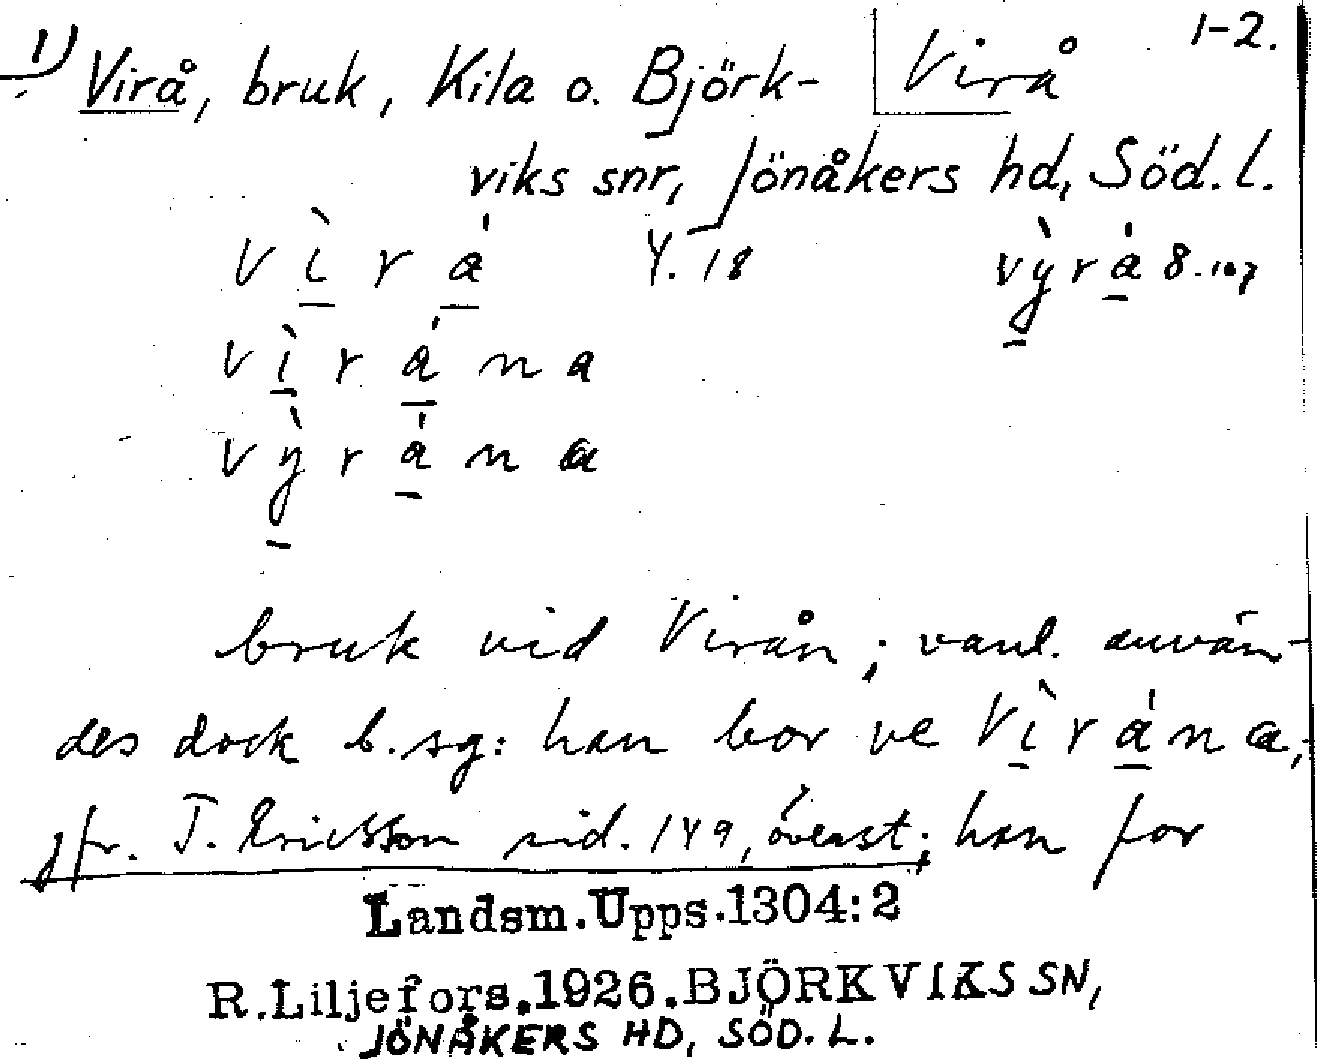 1) Virå, bruk, Kila o. Björk- Virå 1-2.
viks snr, Jönåkers hd, Söd. l.
vìrá 4.18 vỳrá 8.107
vìrána
vỳrána
bruk vid Virån; vanl. använ-
des dock b. sg: han bor ve Vìrána,
jfr. T. Ericsson sid. 149, överst; han for
Landsm.Upps.1304:2
R.Liljefors.1926.BJÖRKVIKS SN,
JÖNÅKERS HD, SÖD. L.